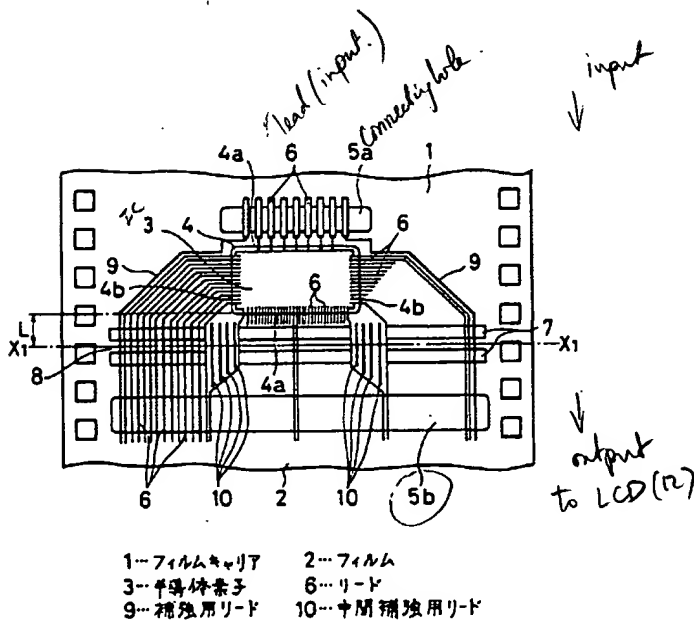 lead (input)
connecting hole
input
4a 6 5a 1
IC
3 4 6
9 9
4b 6 4b
L
X₁ X₁
7
8
4a
output
to LCD (12)
6 10 2 10 5b
1…フィルムキャリア 2…フィルム
3…半導体素子 6…リード
9…補強用リード 10…中間補強用リード